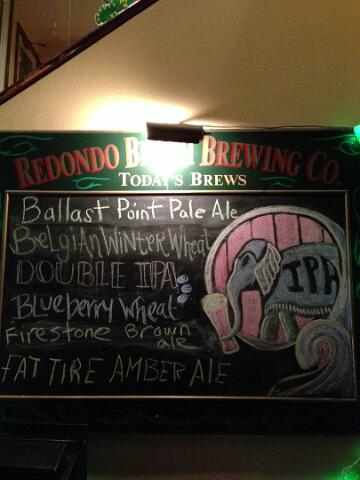 REDONDO BEACH BREWING CO.
TODAY'S BREWS
Ballast Point Pale Ale
Belgian Winter Wheat
DOUBLE IPA
Blueberry Wheat
Firestone Brown
ale
FAT TIRE AMBER ALE
IPA